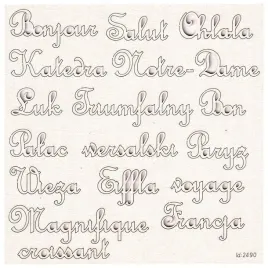 Bonjour Salut Ohlala
Katedra Notre-Dame
Łuk Triumfalny Bon
Pałac wersalski Paryż
Wieża Eiffla voyage
Magnifique Francja
croissant
id.2490